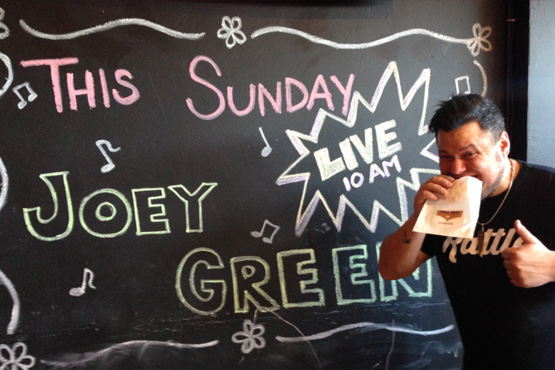 THIS SUNDAY
LIVE
10 AM
JOEY
GREEN